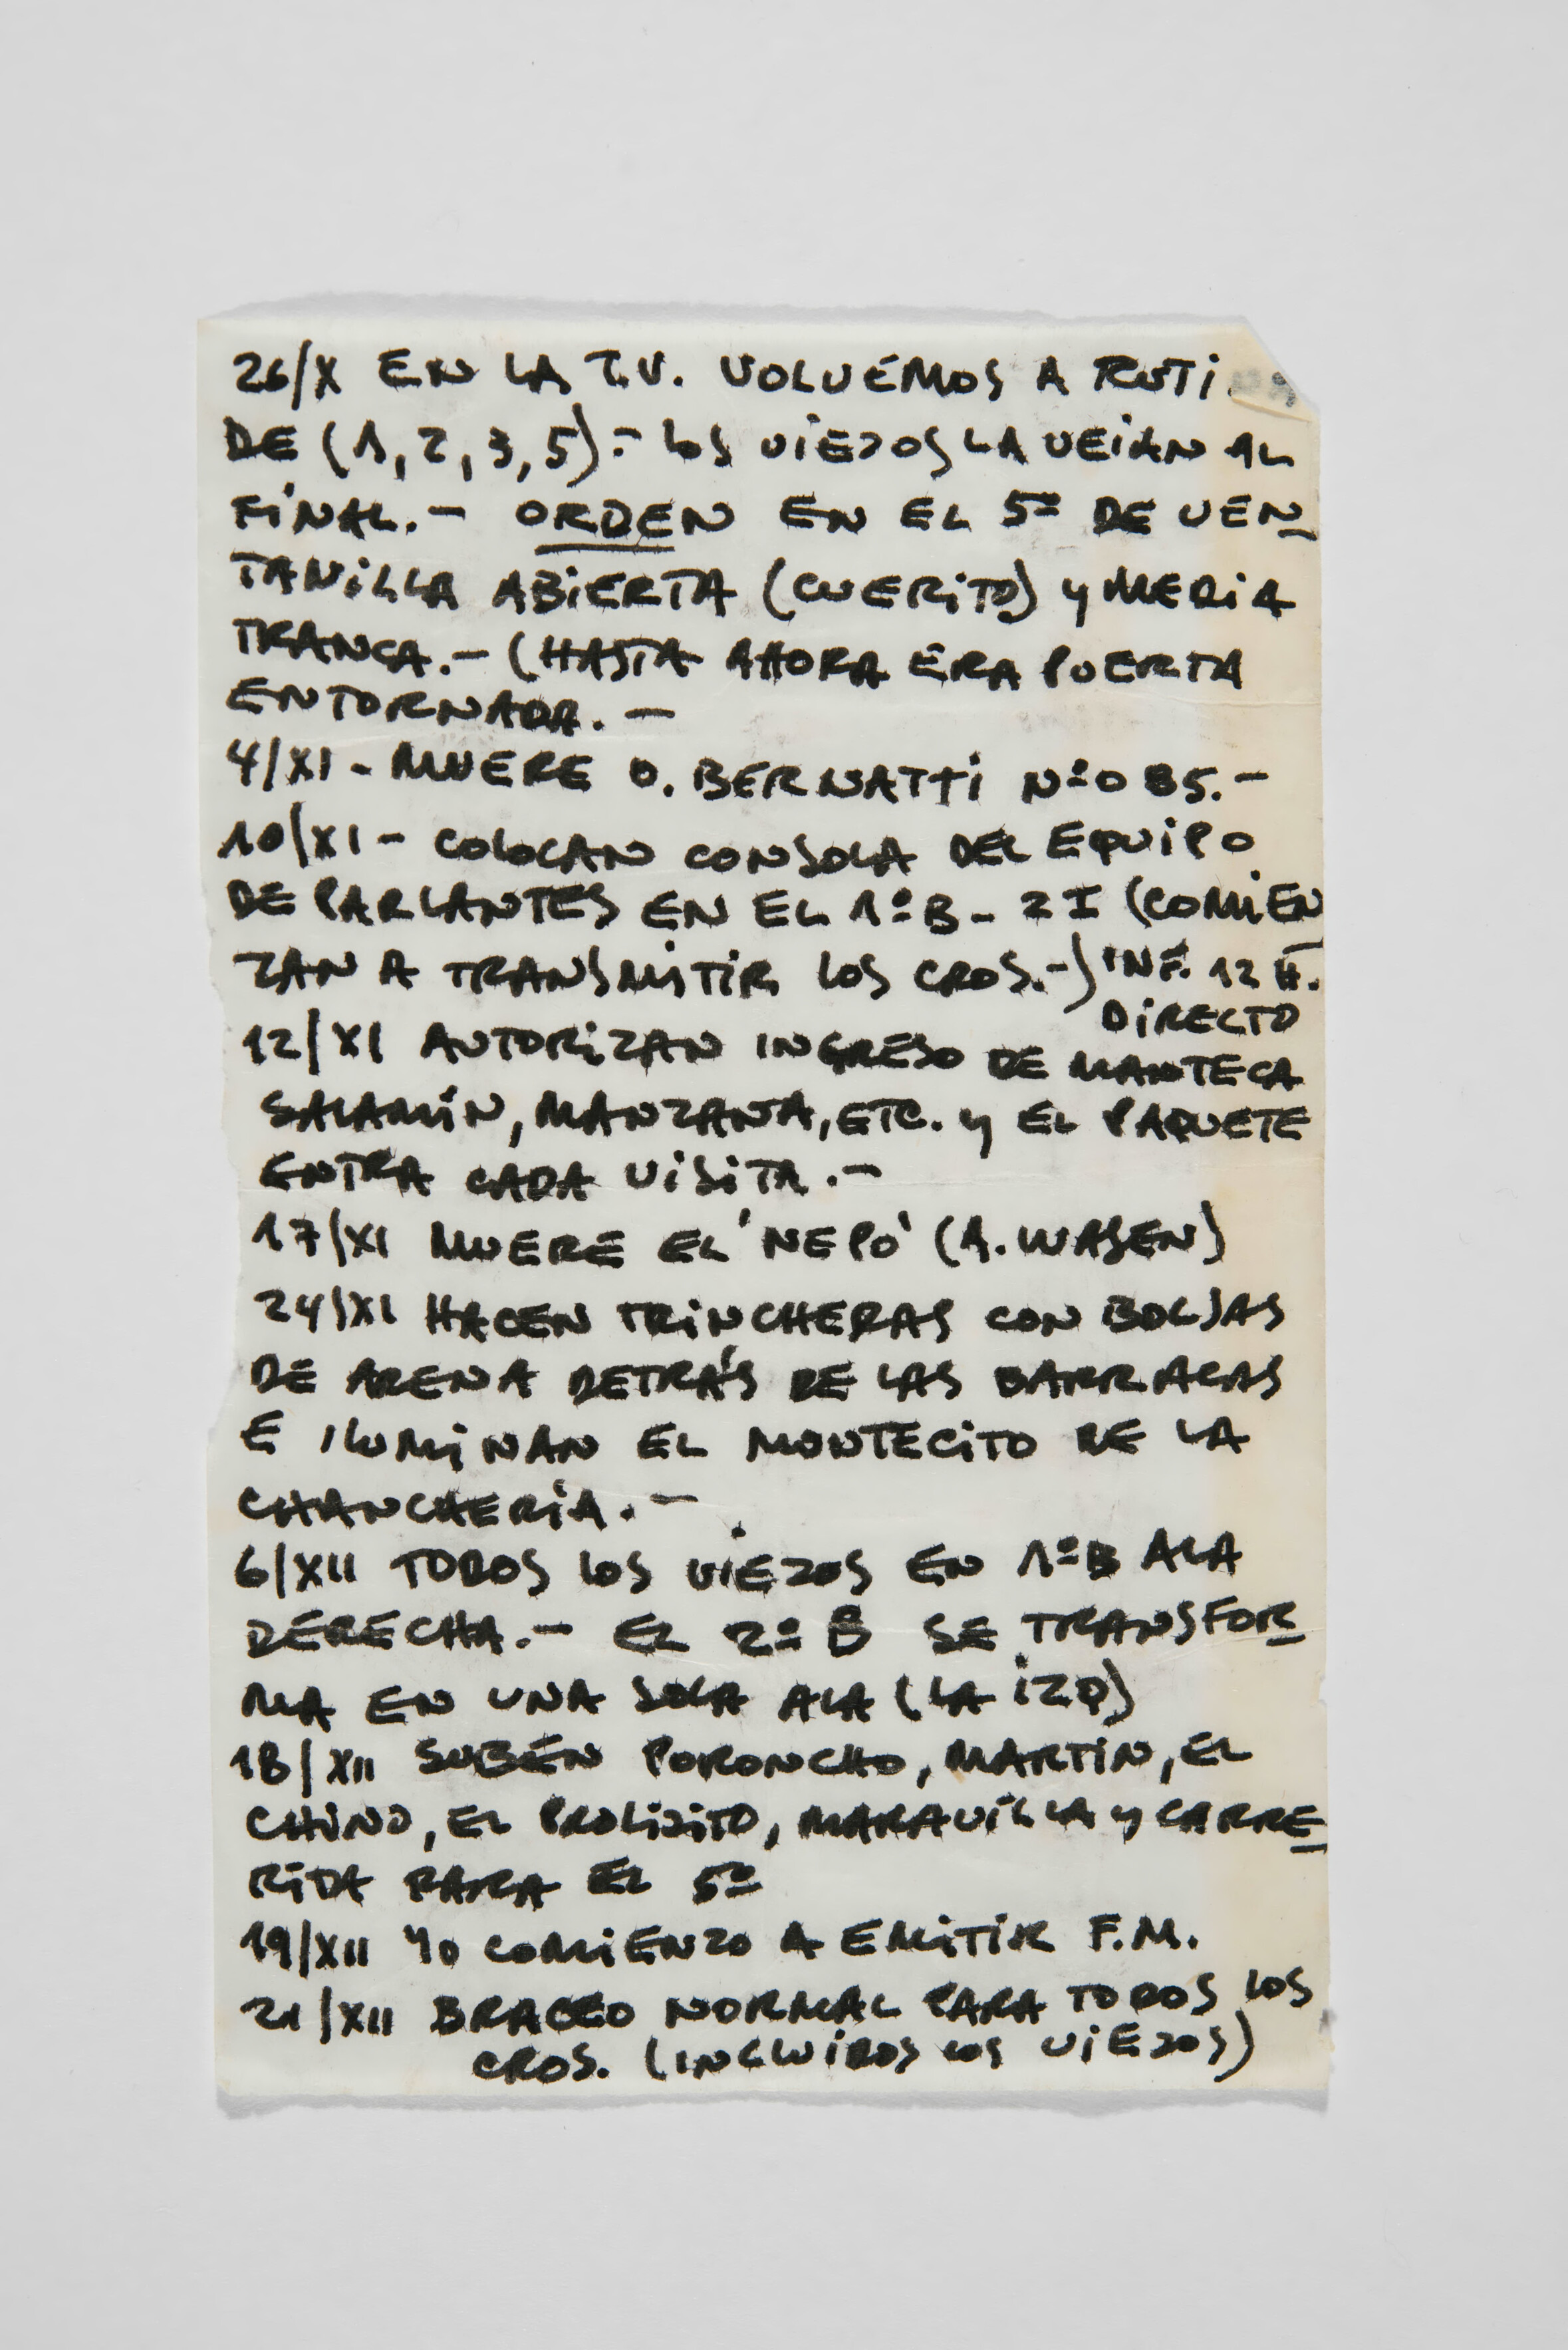 26/X EN LA T.V. VOLVEMOS A RUTINA
DE (1, 2, 3, 5).- LOS VIEJOS LA VEIAN AL
FINAL.- ORDEN EN EL 5º DE VEN-
TANILLA ABIERTA (CUERITO) Y MEDIA
TRANCA.- (HASTA AHORA ERA PUERTA
ENTORNADA.-
4/XI - MUERE O. BERNATTI Nº 085.-
10/XI - COLOCAN CONSOLA DEL EQUIPO
DE PARLANTES EN EL 1º B - 2 I (COMIEN
ZAN A TRANSMITIR LOS CROS.-) INF. 12 H.
DIRECTO
12/XI AUTORIZAN INGRESO DE MANTECA
SALAMÍN, MANZANA, ETC. Y EL PAQUETE
ENTRA CADA VISITA.-
17/XI MUERE EL 'NEPO' (A. WASEN)
24/XI HACEN TRINCHERAS CON BOLSAS
DE ARENA DETRÁS DE LAS BARRACAS
E ILUMINAN EL MONTECITO DE LA
CHANCHERIA.-
6/XII TODOS LOS VIEJOS EN 1º B ALA
DERECHA.- EL 2º B SE TRANSFOR-
MA EN UNA SOLA ALA (LA IZQ)
18/XII SUBEN PORONCHO, MARTIN, EL
CHINO, EL PROLIJITO, MARAVILLA Y CARRE-
RITA PARA EL 5º
19/XII YO COMIENZO A EMITIR F.M.
21/XII BRACEO NORMAL PARA TODOS LOS
CROS. (INCLUIDOS LOS VIEJOS)